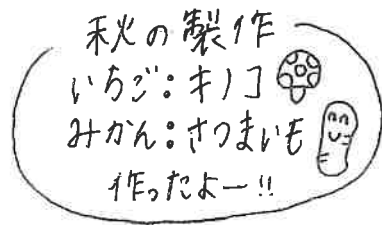 秋の製作
いちご:キノコ
みかん:さつまいも
作ったよー!!